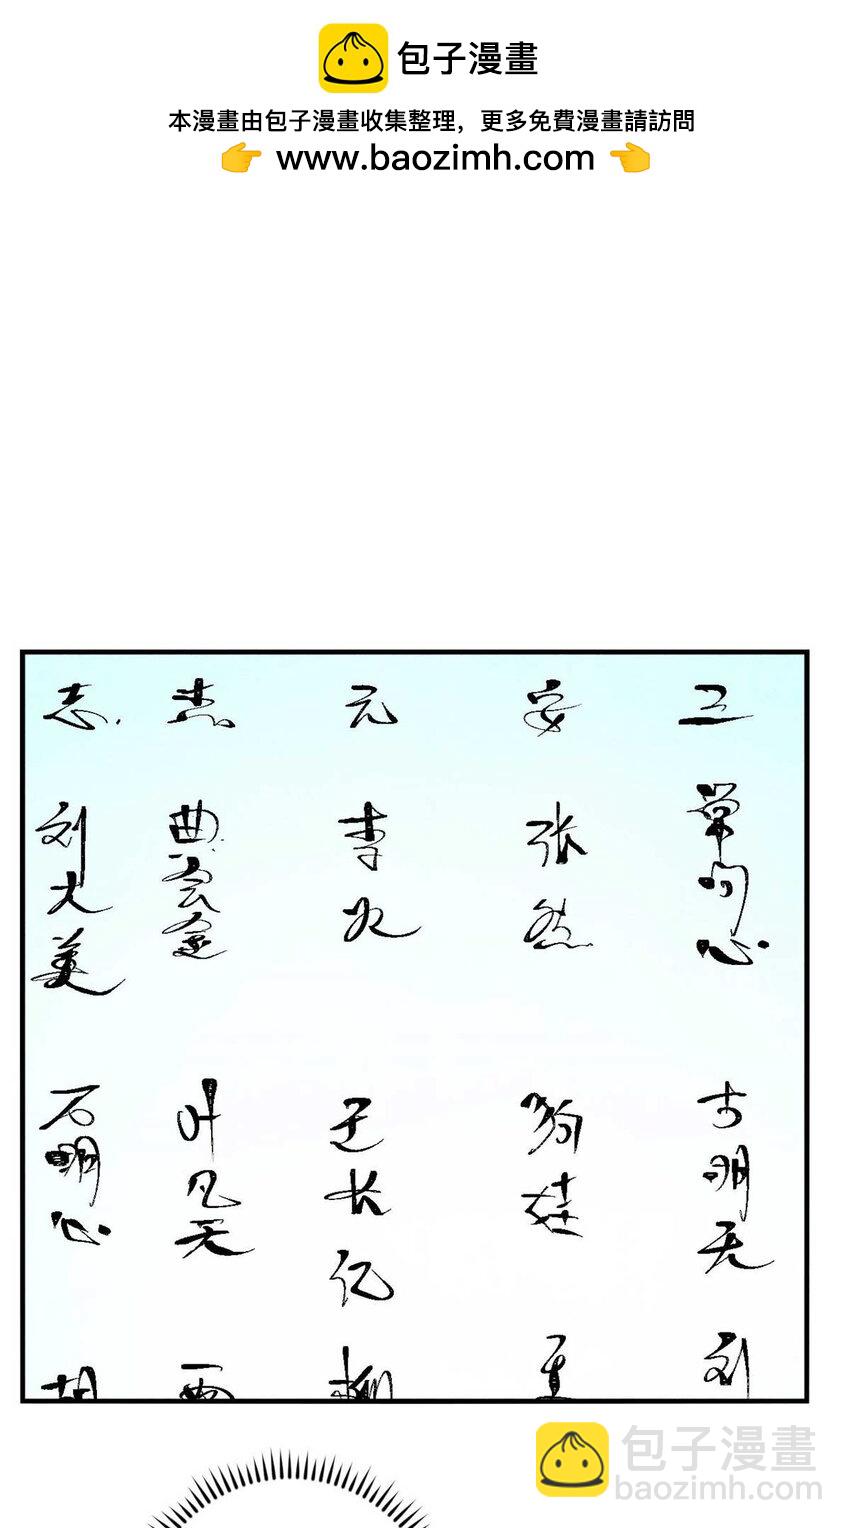 包子漫畫
本漫畫由包子漫畫收集整理，更多免費漫畫請訪問
👉 www.baozimh.com 👈
三
常问心
古明无
刘
安
张然
狗娃
元
李火
王长亿
柳
杰
曲云金
叶凡天
贾
志
刘大美
石明心
胡
包子漫畫
baozimh.com